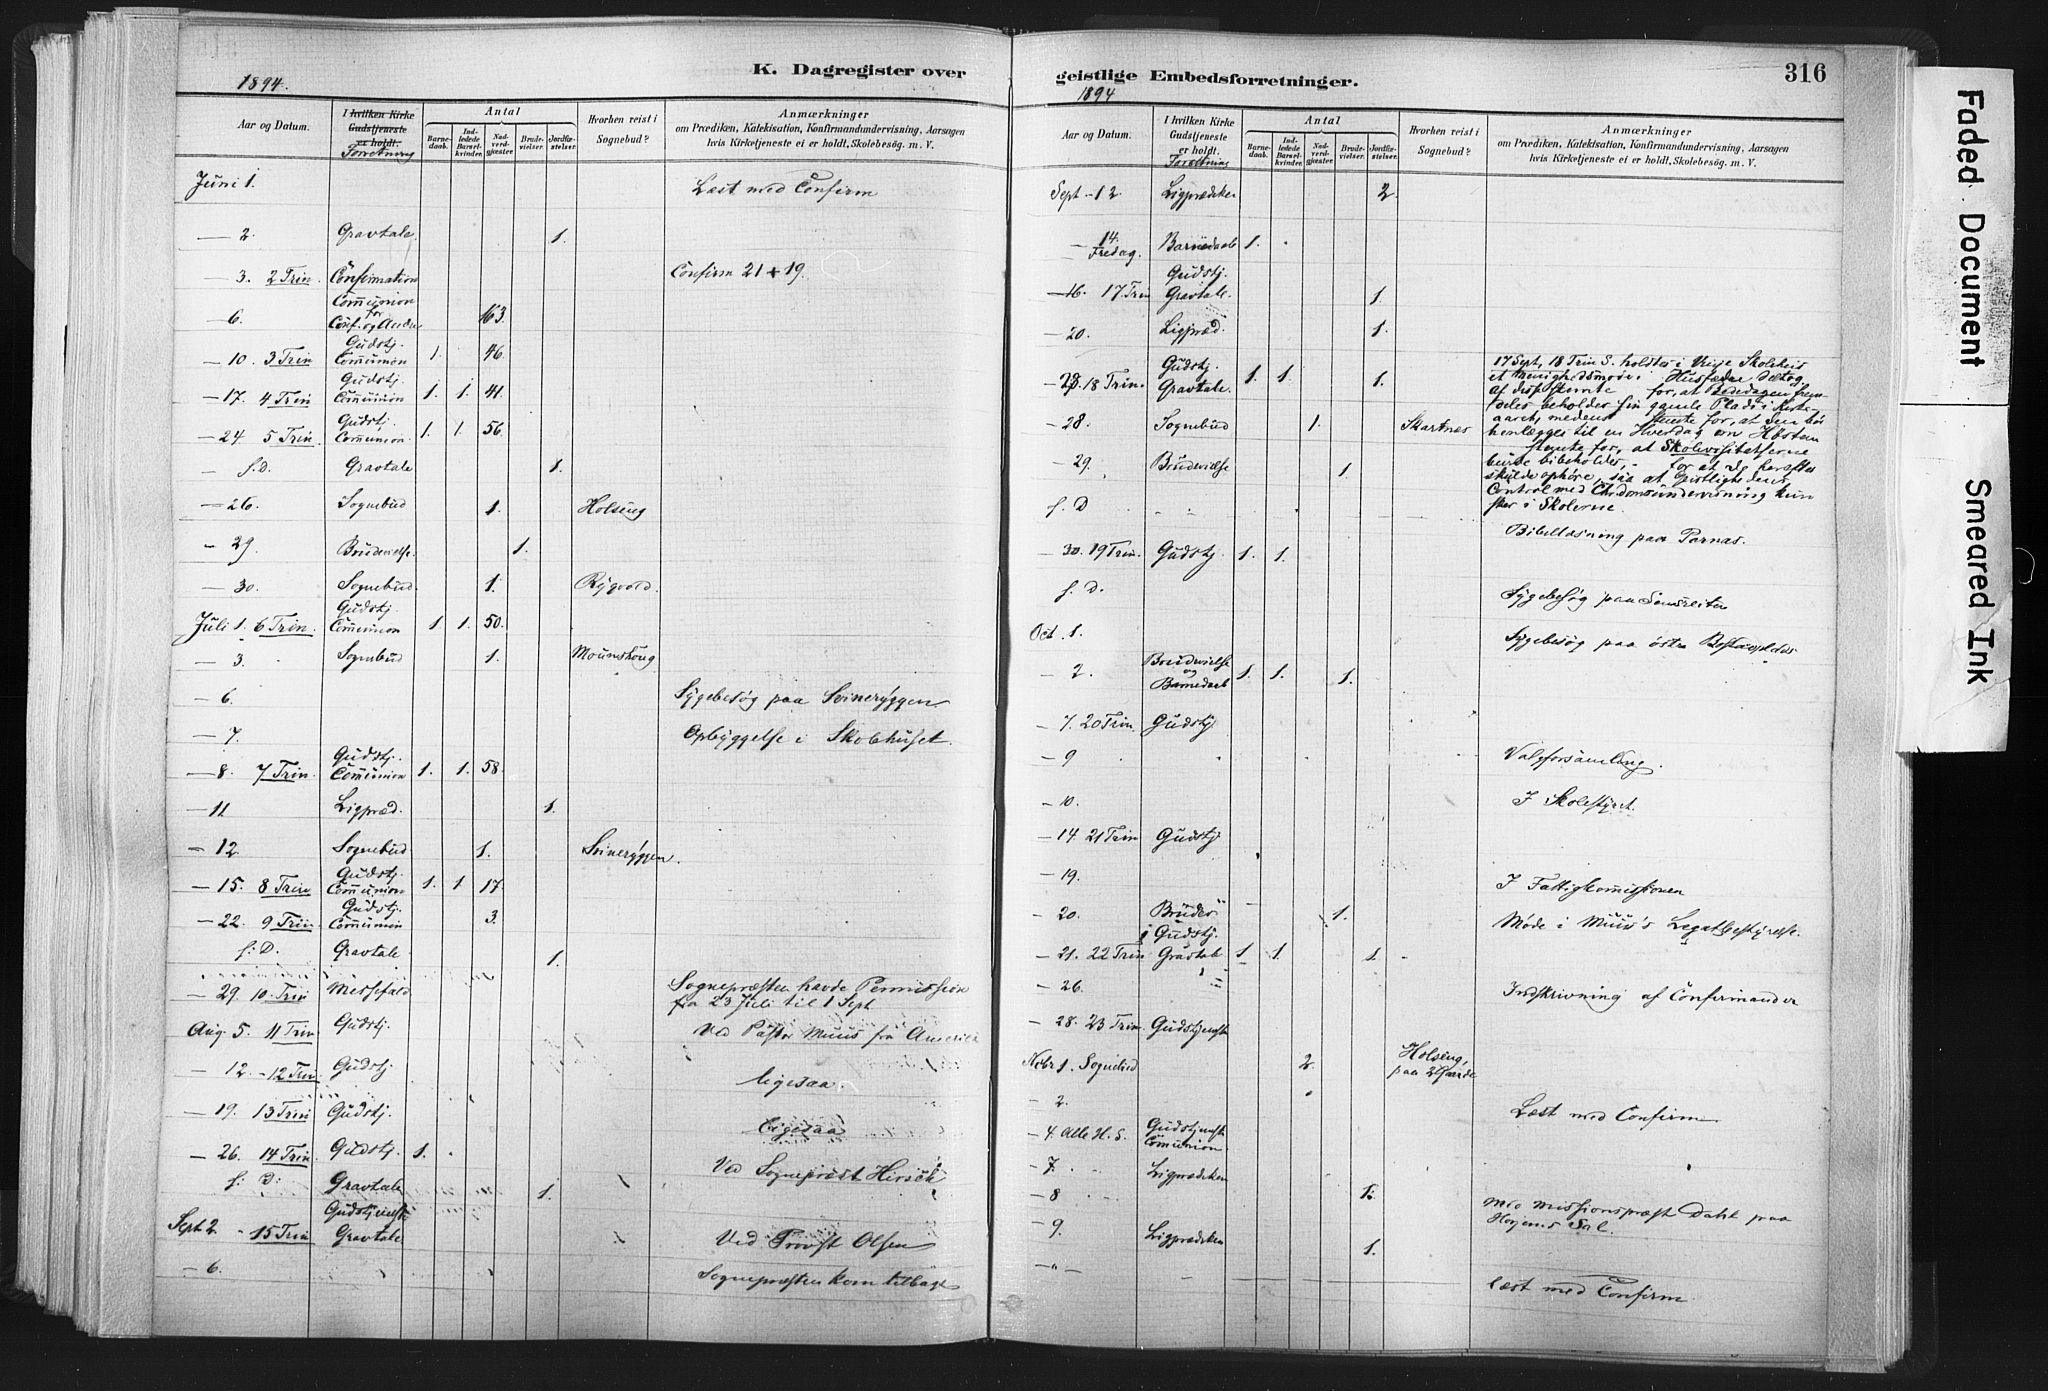 K. Dagregister over
1894.
Aar og Datum.
I hvilken Kirke Gudstjeneste er holdt.
Forretning
Antal
Barnedaab.
Indledede Barselkvinder.
Nadverdgjester
Brudevielser.
Jordfæstelser.
Hvorhen reist i Sognebud?
Anmærkninger
om Prædiken, Katekisation, Konfirmandundervisning, Aarsagen
hvis Kirketjeneste ei er holdt, Skolebesøg. m. V.
Juni 1. Læst med Confirm
— 2. Gravtale 1.
— 3. 2 Trin. Confirmation Confirm 21 + 19.
Communion
for
— 6. Conf. og Andre 163.
Gudstj.
— 10. 3 Trin Communion 1. 46.
Gudstj.
— 17. 4 Trin Communion 1. 1. 41.
Gudstj.
— 24 5 Trin. Communion 1. 1. 56.
s. D. Gravtale 1.
— 26. Sognebud 1. Holseng
— 29. Brudevielse. 1.
— 30. Sognebud. 1. Rygvold.
Gudstj.
Juli 1. 6 Trin. Communion 1 1. 50.
— 3. Sognebud 1.
— 6. Sygebesøg paa Svinerÿggen
— 7. Opbyggelse i Skolhuset.
Gudstj.
— 8. 7 Trin. Communion 1. 1. 58.
— 11 Ligpræd. 1.
— 12 Sognebud 1. Svinerÿggen.
Gudstj.
— 15. 8 Trin Communion 1. 1. 17.
Gudstj.
— 22. 9 Trin Communion 3.
s. D. Gravtale 1.
— 29. 10 Trin Messefald Sognepræsten havde Permission
fra 23 Juli til 1 Sept
Aug. 5. 11 Trin Gudstj. Ved Pastor Muus fra Amerika
— 12. — 12 Trin Gudstj ligesaa.
— 19. 13 Trin Gudstj. ligesaa
— 26. 14 Trin Gudstj. 1. Ved Sognepræst Hirsch
s. D. Gravtale 1.
Gudstjeneste
Sept 2 - 15 Trin Gravtale Ved Provst Olsen
— 6. Sognepræsten kom tilbage
geistlige Embedsforretninger.
316
1894
Aar og Datum.
I hvilken Kirke Gudstjeneste er holdt.
Forretning
Antal
Barnedaab.
Indledede Barselkvinder.
Nadverdgjester
Brudevielser.
Jordfæstelser.
Hvorhen reist i Sognebud?
Anmærkninger
om Prædiken, Katekisation, Konfirmandundervisning, Aarsagen
hvis Kirketjeneste ei er holdt, Skolebesøg. m. V.
Sept — 12 Ligprædiken 2.
— 14. Fredag. Barnedaab 1.
Gudstj.
— 16. 17. Trin Gravtale. 1.
— 20. Ligpræd. 1.
Gudstj.
— 23. 18 Trin. Gravtale. 1. 1. 1.
17 Sept, 18 Trin S. holdtes i Skolehus
et Menighedsmøde. Husfædre deltog
af disse stemte for, at Bededagen frem-
deles beholder sin gamle Plads i Kirke-
aaret, medens stemte for, at den bør
henlægges til en Hverdag om Høsten
stemte for, at Skolevisitatserne
burde bibeholdes, — for at de herefter
skulde ophøre, saa at Geistlighedens
Control med Chrdomsundervisning kun
sker i Skolerne.
— 28. Sognebud 1. Skartnes
— 29. Brudevielse 1.
s. D Bibellæsning paa Parnas.
— 30. 19 Trin. Gudstj 1. 1.
s. D. Sygebesøg paa
Oct. 1. Sygebesøg paa østre
— 2. Brudevielse og Barnedaab 1. 1. 1.
— 7. 20 Trin Gudstj
— 9 Valgforsamling.
— 10. I Skolestyret.
— 14 21 Trin Gudstj
— 19. I Fattigkommissionen
— 20. Brudev 1. Møde i Muus's Legatbestyrelse.
Gudstj.
— 21. 22 Trin Gravtale 1 1. 1.
— 26. Indskrivning af Confirmander
— 28. 23 Trin. Gudstjeneste
Novbr 1. Sognebud 2. Holseng, paa 2 Gaarde
— 2. Læst med Confirm
— 4. Alle H. S. Gudstjeneste Communion
— 7. Ligprædiken
— 8 1. Med Missionspræst Dahl paa
Sal.
— 9. Ligprædiken 1.
— " — læst med Confirm
Faded Document Smeared Ink